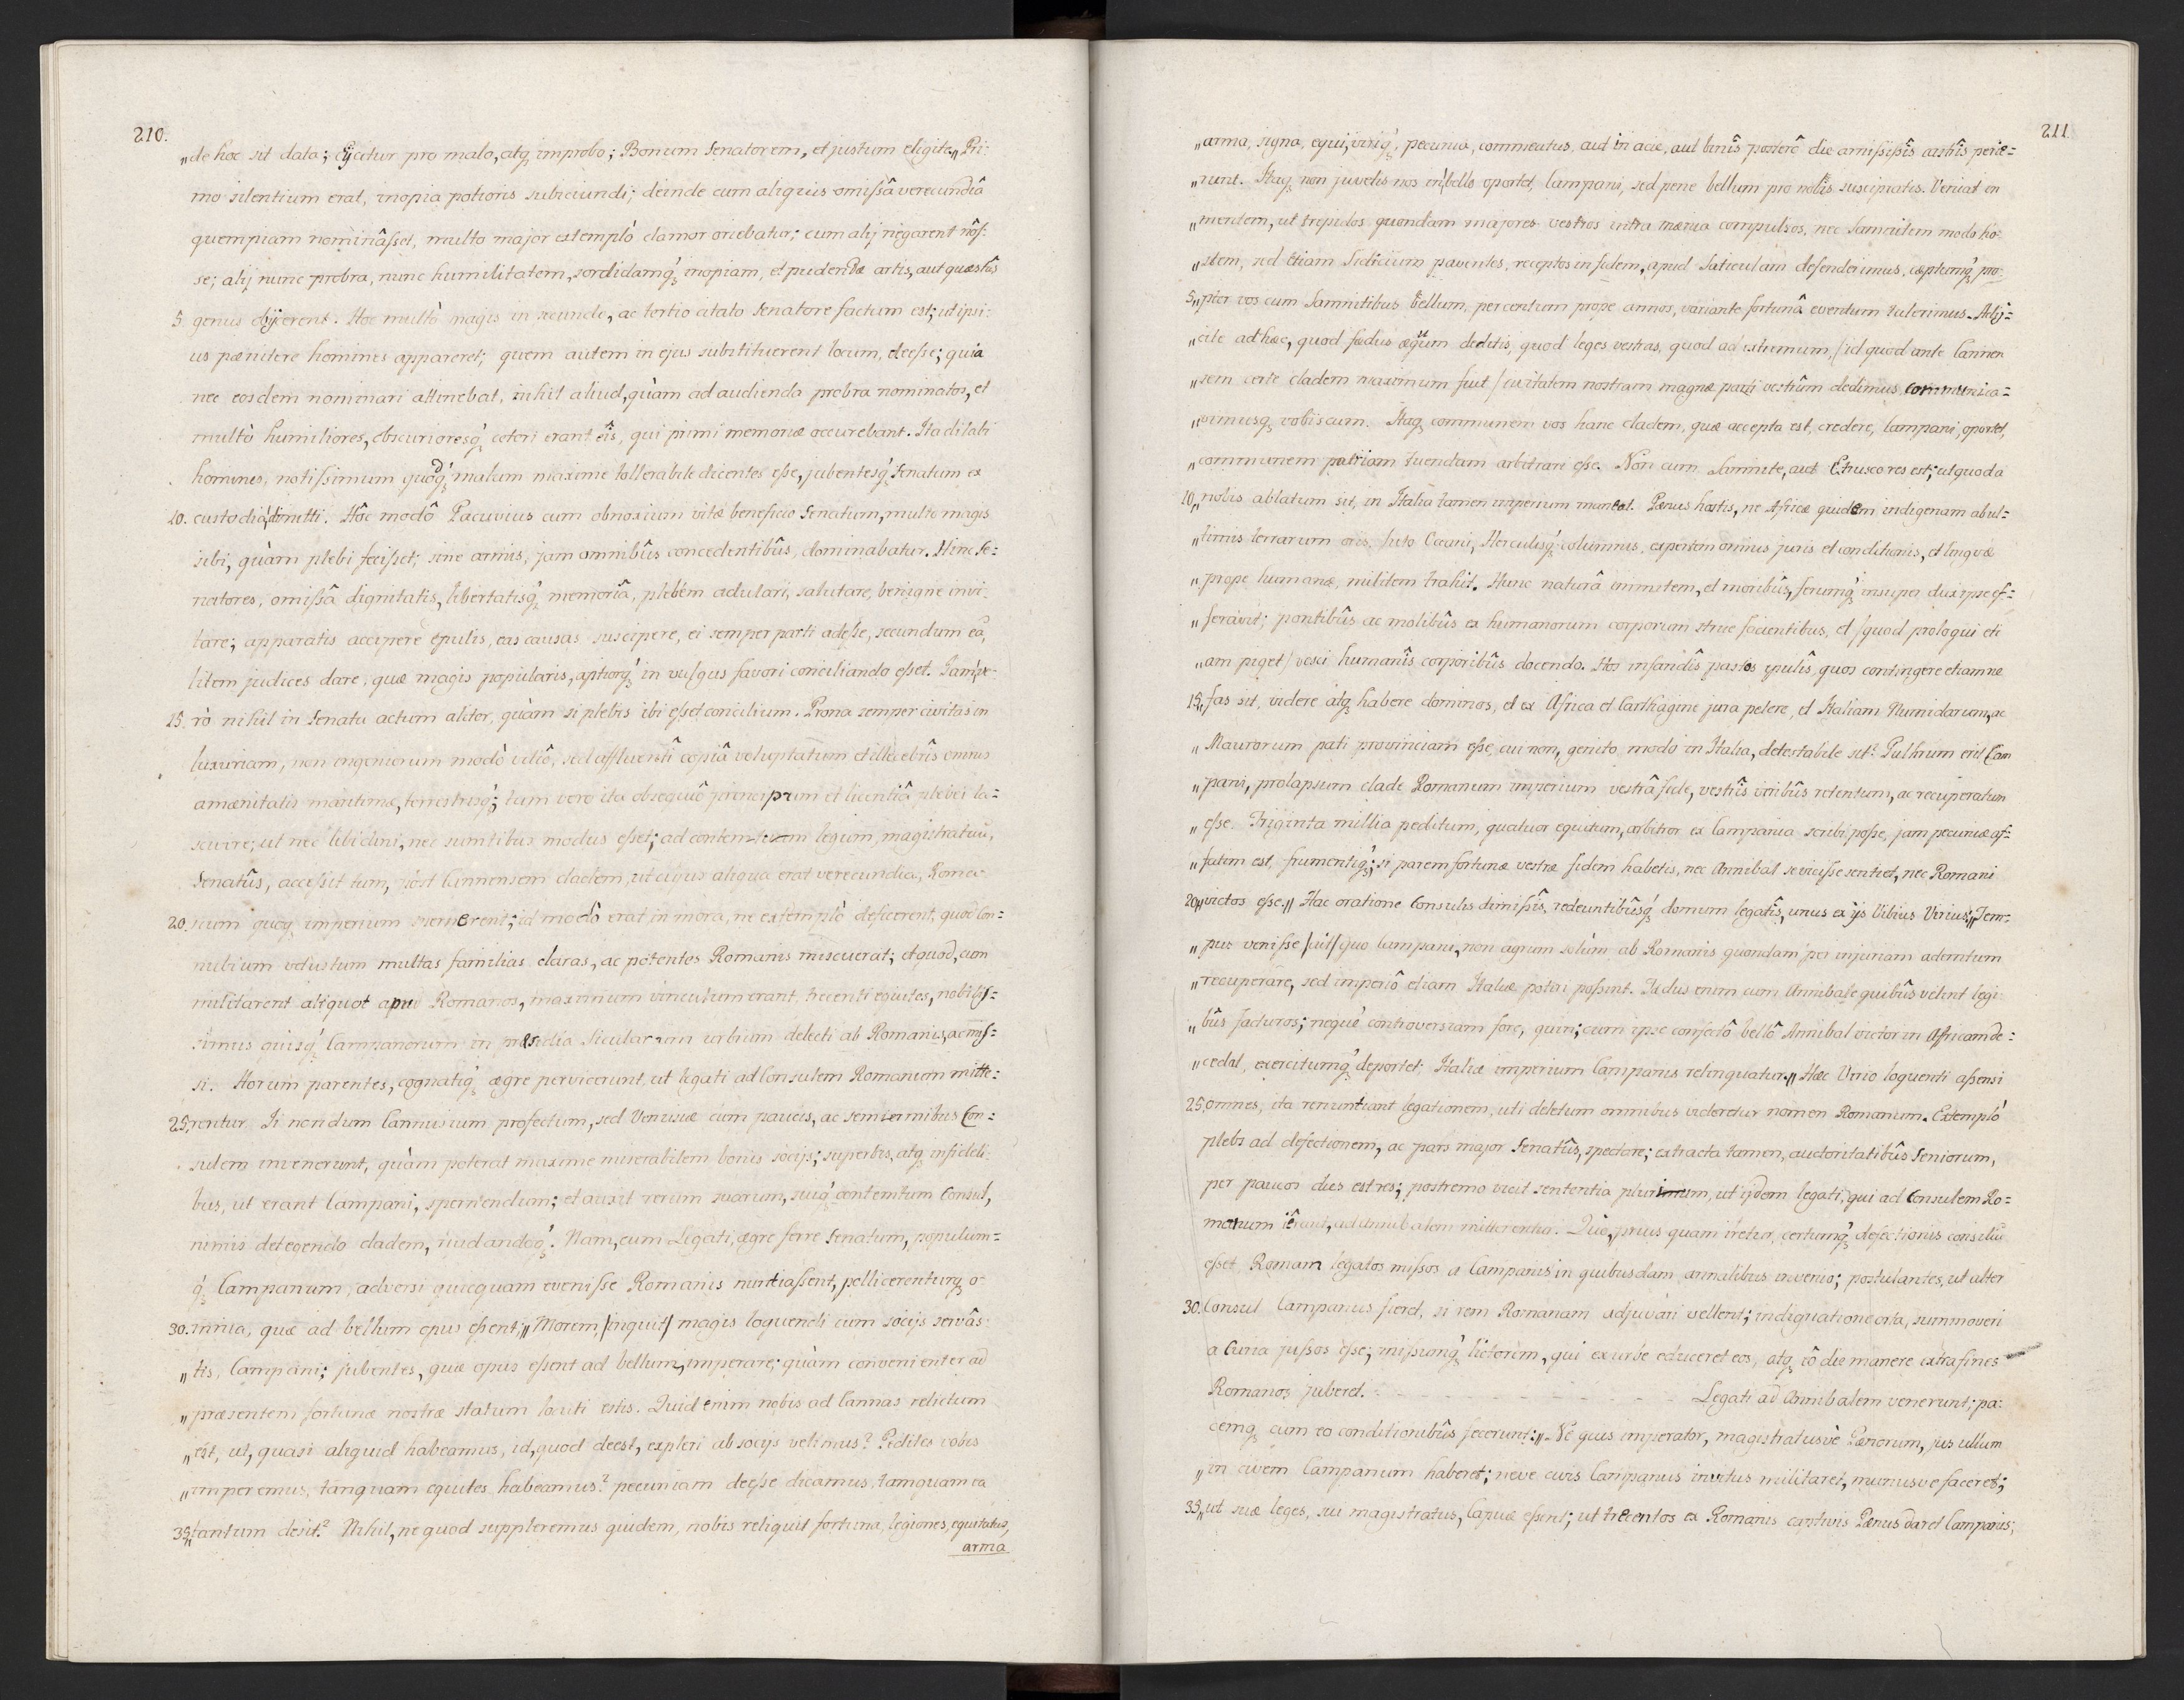 210.
„de hoc sit data; Ejicitur pro malo, atq; improbo; Bonum Senatorem, et justum eligite„ Pri:
mo silentium erat, inopia potioris subiiciundi; deinde cum aliquis omissâ verecundiâ
quempiam nominâsset, multo major extemplò clamor oriebatur; cum alij negarent nôs:
se; alij nunc probra, nunc humilitatem, sordidamq; inopiam, et pudendæ artis, aut quæstûs
5. genus objicerent. Hoc multò magis in secundo, ac tertio citato Senatore factum est; ut ipsi:
us pænitere homines appareret; quem autem in ejus substituerent locum, deesse; quia
nec eosdem nominari attinebat, nihil aliud, quàm ad audienda probra nominatos, et
multò humiliores, obscurioresq; ceteri erant eîs, qui primi memoriæ occurebant. Ita dilabi
homines, notissimum quodq; malum maxime tollerabile dicentes esse, jubentesq; Senatum ex
10. custodiâ dimitti. Hôc modô Pacuvius cum obnoxium vitæ beneficio Senatum, multo magis
sibi, quàm plebi fecisset; sine armis, jam omnibûs concedentibûs, dominabatur. Hinc Se:
natores, omissâ dignitatis, libertatisq; memoriâ, plebem adulari, salutare, benigne invi:
tare; apparatis accipere epulis, eas causas suscipere, ei semper parti adesse, secundum eâ,
litem judices dare, quæ magis popularis, aptiorq; in vulgus favori conciliando esset. Jam ve:
15. rò nihil in Senatu actum aliter, quàm si plebis ibi esset concilium. Prona semper civitas in
luxuriam, non ingeniorum modò vitiô, sed affluenti copiâ voluptatum et illecebrîs omnis
amænitatis maritimæ, terrestrisq;; tum vero ita obsequiô principum et licentiâ plebei la=
scivire; ut nec libidini, nec sumtibus modus esset; ad contemtum legum, magistratuû,
Senatûs, accessit tum, post Cannensem cladem, ut cujus aliqua erat verecundia, Roma:
20. num quoq; imperium spernerent; id modô erat in mora, ne extemplò deficerent, quod con=
nubium vetustum multas familias claras, ac potentes Romanis miscuerat; et quod, cum
militarent aliquot apud Romanos, maximum vinculum erant, trecenti equites, nobilis=
simus quisq; Campanorum in præsidia Sicularum urbium delecti ab Romanis, ac mis=
si. Horum parentes, cognatiq; ægre pervicerunt, ut legati ad Consulem Romanum mitte:
25. rentur. Ii nondum Cannusium profectum, sed Venusiæ cum paucis, ac semiermibus Con=
sulem invenerunt, quàm poterat maxime miserabilem bonis socijs; superbis, atq; infideli:
bus, ut erant Campani, spernendum; et auxit rerum suarum, suiq; contemtum Consul,
nimis detegendo cladem, nudandoq;. Nam, cum Legati, ægre ferre Senatum, populum=
q; Campanum, adversi quicquam evenisse Romanis nuntiassent, pollicerenturq; o:
30. mnia, quæ ad bellum opus essent; „ Morem, /inquit/ magis loquendi cum socijs servâs:
„ tis, Campani; jubentes, quæ opus essent ad bellum, imperare; quàm convenienter ad
„ præsentem fortunæ nostræ statum locuti estis. Quid enim nobis ad Cannas relictum
„ est, ut, quasi aliquid habeamus, id, quod deest, expleri ab socijs velimus? Pedites vobis
„ imperemus, tanquam equites habeamus? pecuniam deesse dicamus, tamquam ea
35. „tantum desit? Nihil, ne quod suppleremus quidem, nobis reliquit fortuna, legiones, equitatus,
arma
211.
„arma, signa, equi, viriq;, pecunia, commeatus, aut in acie, aut binîs posterô die amissîs castrîs perie=
„runt. Itaq; non juvetis nos in bello oportet, Campani, sed pene bellum pro nobîs suscipiatis. Veniat in
„mentem, ut trepidos quondam majores vestros intra mænia compulsos, nec Samnitem modo ho:
„stem, sed etiam Sidicinum paventes, receptos in fidem, apud Saticulam defenderimus, cæptumq; pro:
5. „pter vos cum Samnitibus bellum, per centum prope annos, variante fortunâ eventum tulerimus. Adij=
„cite ad hæc, quod fædus æquum deditis, quod leges vestras, quod ad extremum, /id quod ante Cannen
„sem certe cladem maximum fuit/ civitatem nostram magnæ parti vestrûm dedimus, communica=
„vimusq; vobiscum. Itaq; communem vos hanc cladem, quæ accepta est, credere, Campani, oportet,
„communem patriam tuendam arbitrari esse. Non cum Samnite, aut Etrusco res est; ut quod a
10. „nobis ablatum sit, in Italia tamen imperium maneat. Pænus hostis, ne Africæ quidem indigenam ab ul=
„timis terrarum oris, freto Oceani, Herculisq; columnis, expertem omnis juris et conditionis, et linguæ
„ prope humanæ, militem trahit. Hunc naturâ immitem, et moribûs, ferumq; insuper dux ipse ef=
„ feravit; pontibûs ac molibûs ex humanorum corporum strue facientibus, et /quod proloqui eti
„am piget/ vesci humanîs corporibûs docendo. Hos infandîs pastos epulîs, quos contingere etiam ne
15. „fas sit, videre atq; habere dominos, et ex Africa et Carthagine jura petere, et Italiam Numidarum, ac
„ Maurorum pati provinciam esse, cui non, genito modò in Italia, detestabile sit? Pulchrum erit Cam
„pani, prolapsum clade Romanum imperium vestrâ fide, vestrîs viribûs retentum, ac recuperatum
„ esse. Triginta millia peditum, quatuor equitum, arbitror ex Campania scribi posse, jam pecuniæ af=
„fatim est, frumentiq;; si parem fortunæ vestræ fidem habetis, nec Annibal se vicisse sentiet, nec Romani
20. „victos esse.„ Hac oratione Consulis dimissîs, redeuntibûsq; domum legatîs, unus ex ijs Vibius Virius; „Tem=
„ pus venisse /ait/ quo Campani, non agrum solùm ab Romanis quondam per injuriam ademtum
„recuperare, sed imperiô etiam Italiæ potiri possint. Fædus enim cum Annibale quibûs velint legi:
„ bûs facturos; neque controversiam fore, quin; cum ipse confectô bellô Annibal victor in Africam de=
„cedat, exercitumq; deportet; Italiæ imperium Campanis relinquatur.„ Hæc Virio loquenti assensi
25. omnes, ita renuntiant legationem, uti deletum omnibus videretur nomen Romanum. Extemplò
plebs ad defectionem, ac pars major Senatûs, spectare; extracta tamen, auctoritatibûs Seniorum,
per paucos dies est res; postremo vicit sententia plurium, ut ijdem legati, qui ad Consulem Ro=
manum iêrant, ad Annibalem mitterentur. Quò, prius quam iretur, certumq; defectionis consiliû
esset, Romam legatos missos a Campanis in quibusdam annalibus invenio; postulantes, ut alter
30. Consul Campanus fieret, si rem Romanam adjuvari vellent; indignatione orta, summoveri
a Curia jussos esse; missumq; lictorem, qui ex urbe educeret eos, atq; eô die manere extra fines
Romanos juberet. - - - - - - - - - - Legati ad Annibalem venerunt; pa:
cemq; cum eo conditionibûs fecerunt: „ Nè quis imperator, magistratusvè Pænorum, jus ullum
„in civem Campanum haberet; neve civis Campanus invitus militaret, munusve faceret;
35. „ut suæ leges, sui magistratus, Capuæ essent; ut trecentos ex Romanis captivis Pænus daret Campanis;